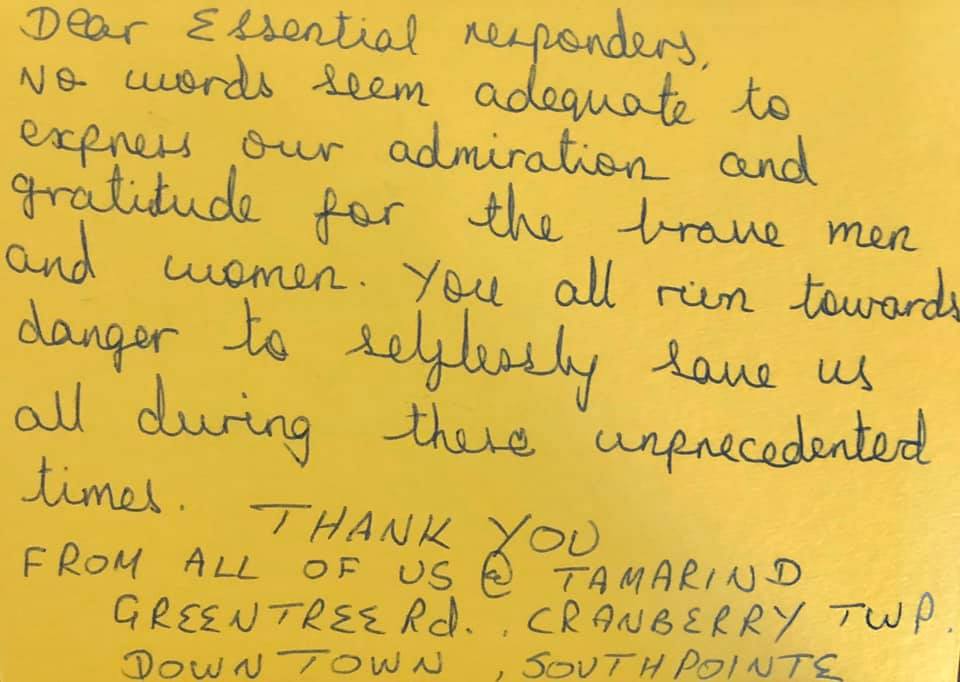 Dear Essential responders,
No words seem adequate to
express our admiration and
gratitude for the brave men
and women. You all run towards
danger to selflessly save us
all during these unprecedented
times.
THANK YOU
FROM ALL OF US @ TAMARIND
GREENTREE Rd., CRANBERRY TWP.
DOWNTOWN, SOUTHPOINTE